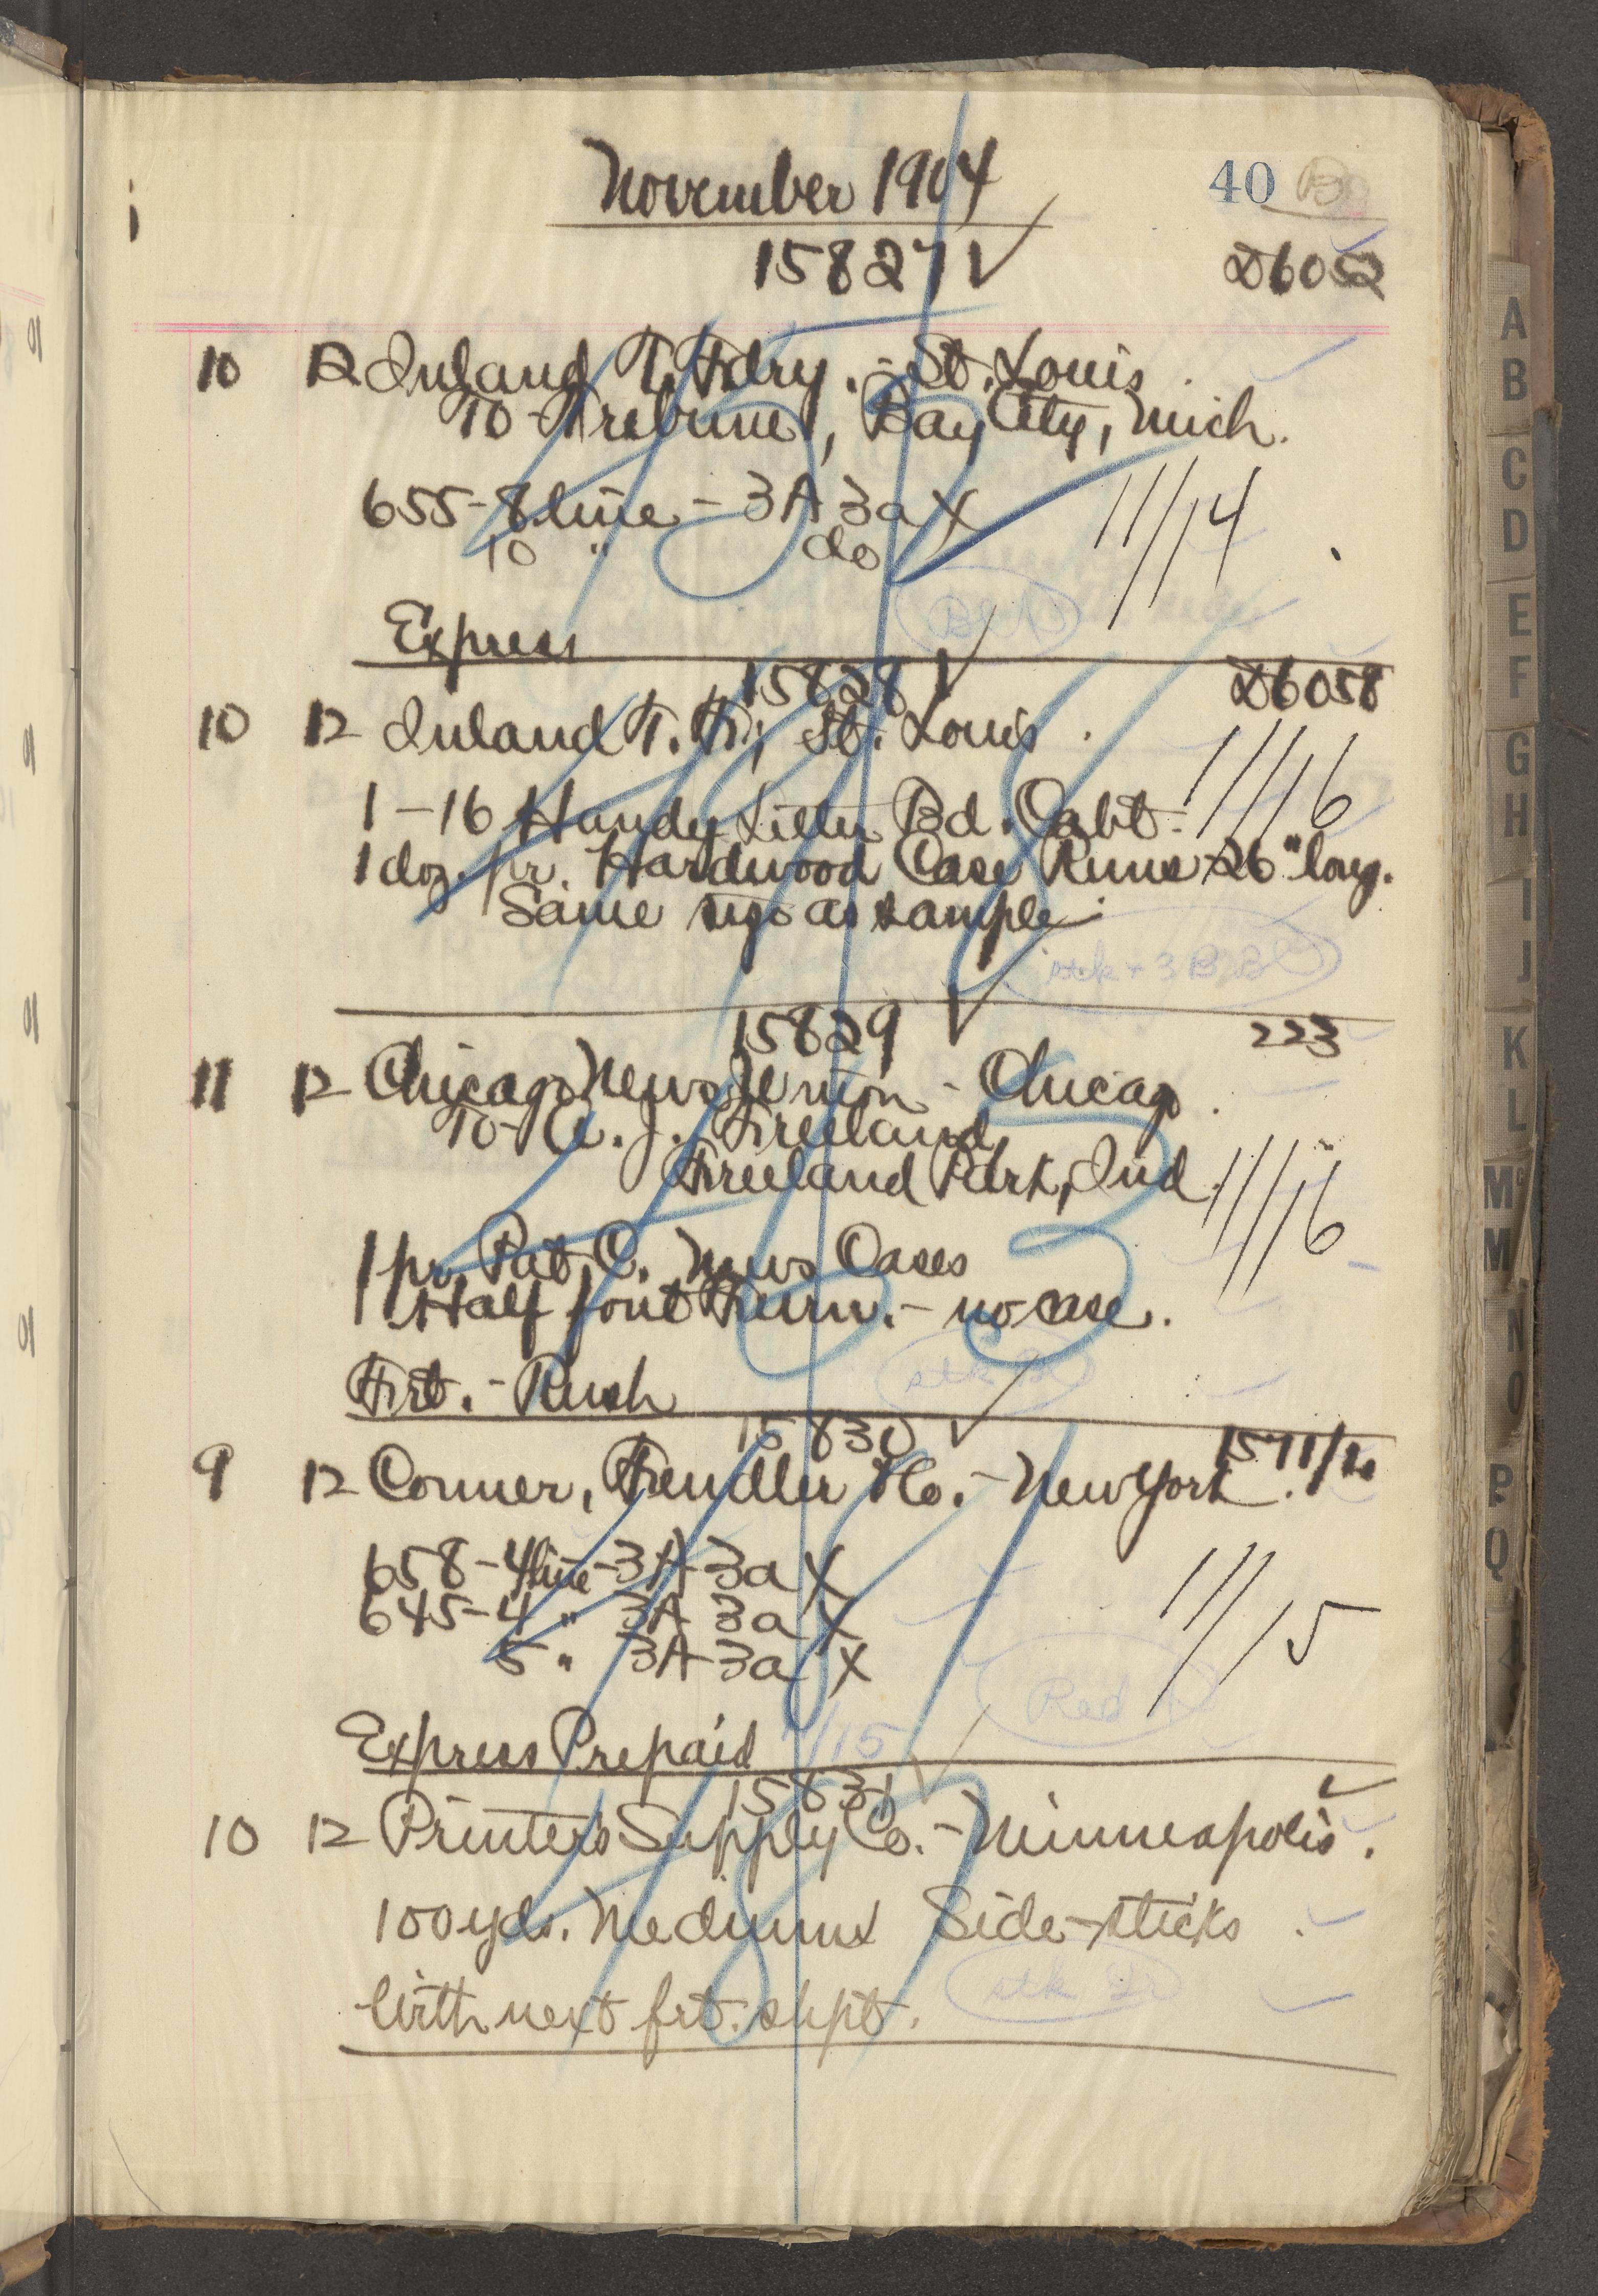 November 1904
40
15827 ✓ D6052
10 12 Inland T. Fdry. - St. Louis.
To - Tribune, Bay City, Mich.
655 - 8 line - 3A 3a X 11/14
10 " do
Express
15828 ✓ D6058
10 12 Inland T. F., St. Louis.
1 - 16 Handy Letter Bd. Cabt. 11/16
1 doz. pr. Hardwood Case Runs 26" long.
Same style as sample.
stk + 3
15829 ✓ 223
11 12 Chicago News Union - Chicago.
To - A. J. Freeland,
Freeland Park, Ind. 11/16
1 pr. Pat. C. News Cases
1 Half font Furn. - no case.
Frt. - Rush
stk
15830 ✓ 1571/12
9 12 Conner, Fendler & Co. - New York.
658 - 4 line - 3A 3a X
645 - 4 " 3A 3a X 11/15
5 " 3A 3a X
Red
Express Prepaid 11/15
15831 ✓
10 12 Printers Supply Co. - Minneapolis.
100 yds. Medium Side-sticks.
With next frt. shpt.
stk
A
B
C
D
E
F
G
H
I
J
K
L
Mc
M
N
O
P
Q